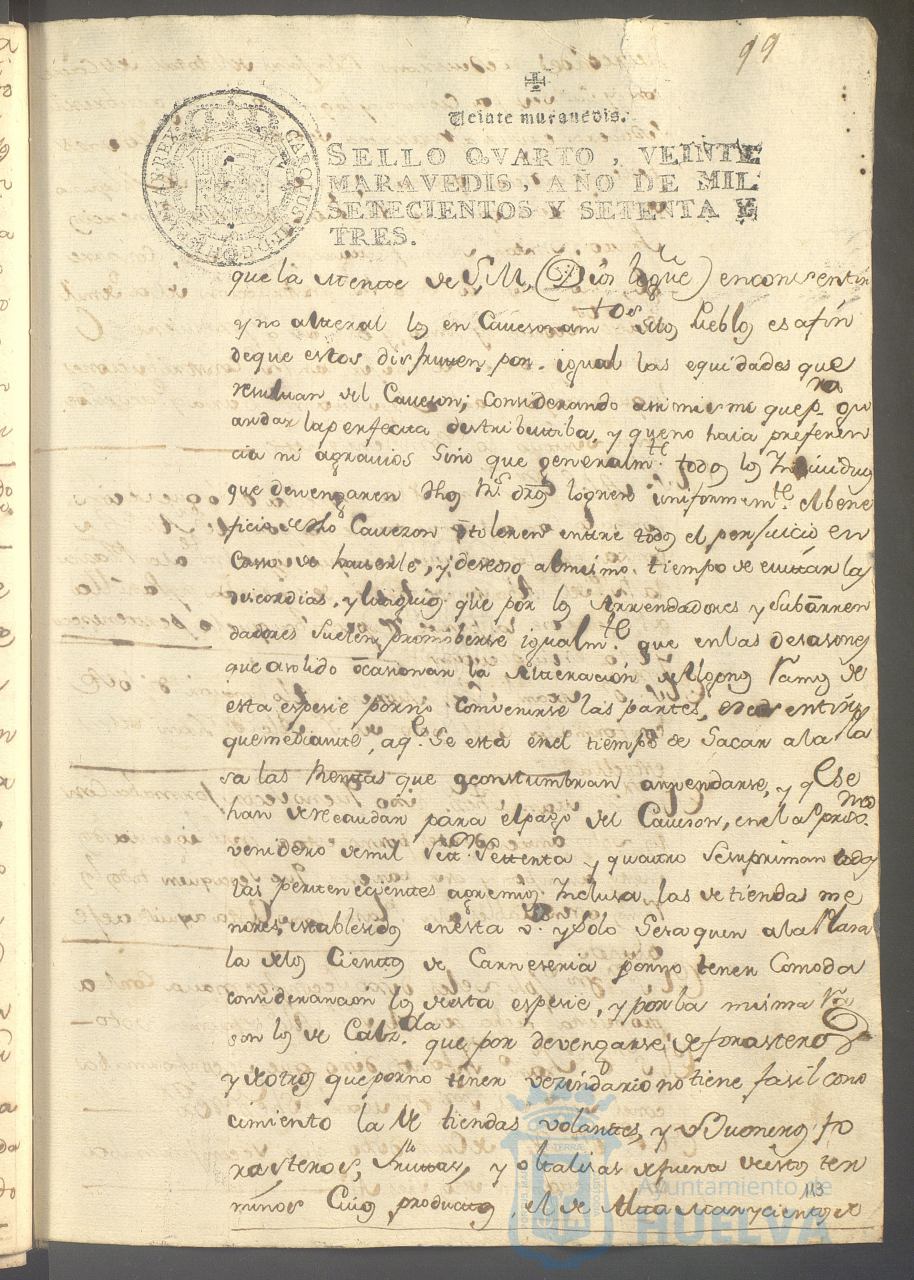 99
Veinte marauedis.
SELLO QVARTO, VEINTE
MARAVEDIS, AÑO DE MIL
SETECIENTOS Y SETENTA Y
TRES.
CAROLUS III D G HISPANIAR REX
que la mente de S.M. (Dios lo gue) en concentir
y no alteral los en Cauesonamtos delos Pueblos es afin
de que estos disfruten por igual las equidades que
resultan del Caueson; considerando asi mismo que pra gu
ardar la perfecta destributiba, y que no haia preferen
cia ni agrauios sino que generalmte todos los Indiuiduos
que devengaren dhos Rs dros logren uniformemte el bene
ficio de dho Cauezon ó toleren entre todos el perjuicio en
Casso de hauerle, y deseoso al mismo tiempo de euitar las
discordias, y litigios que por los Arrendadores y Subarren
dadores suelen promoberse igualmte que en las desasones
que asolido ocasionar la Alteracion de Algunos Ramos de
esta espesie por no convenirse las partes,
que mediante, aqe se está en el tiempo de Sacar a la
sa las Rentas que acostumbran arrendarse, y qe se
han de recaudar para el pago del Caueson, en el a pro
venidero de mil Settos Settenta y quatro Se supriman todos
las pertenecientes agremios Inclusa las de tiendas me
nores, establesidos en esta va y solo Se saquen a la Plasa
la delos Cientos de Carneseria por no tener Comoda
consideracion los de esta espesie, y por la misma Ra
son los de Calzda que por devengarse, de forasteros
y de otros que por no tener vezindario no tiene fasil cono
cimiento la de tiendas volantes, y de Buoneros fo
rasteros, fruttas, y ortalisas de fuera de estos ter
minos Cuios productos, el de Alta mar y cientos de
113
Ayuntamiento de
HUELVA